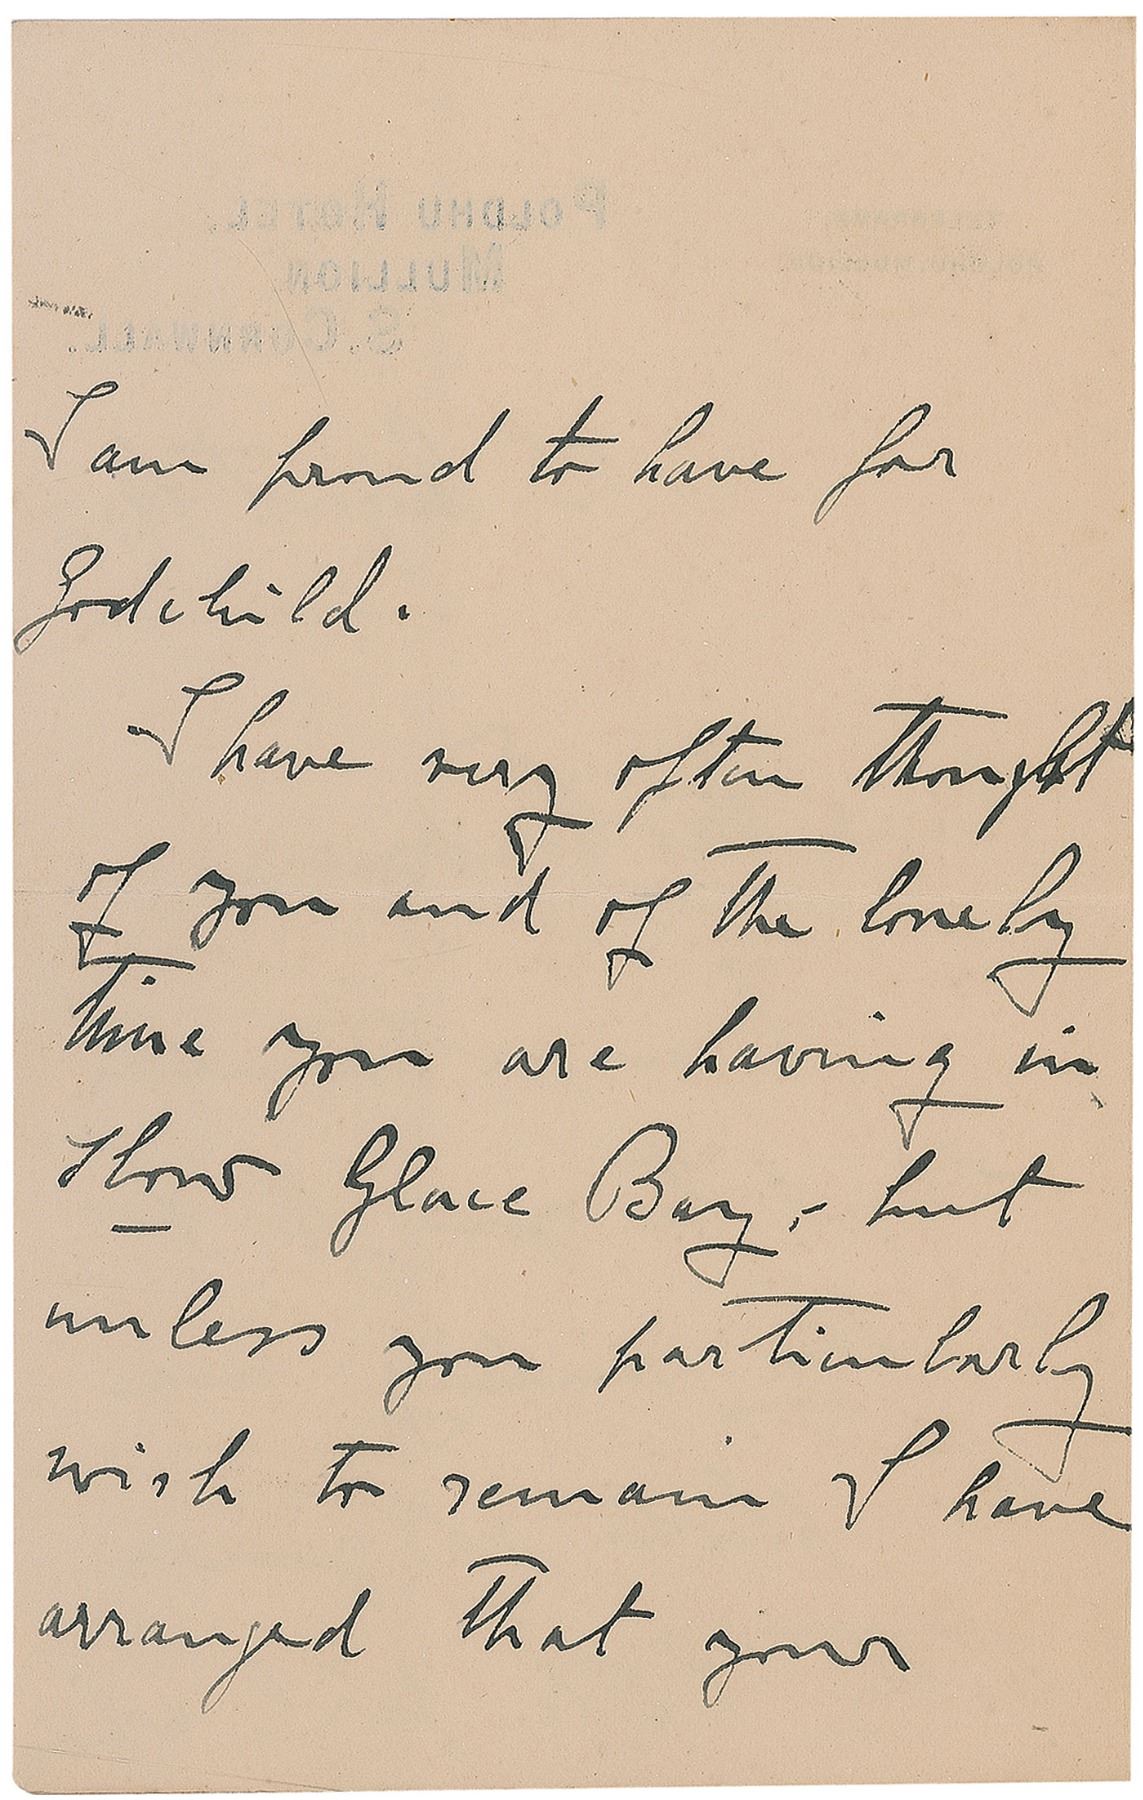 POLDHU HOTEL.
MULLION
S. CORNWALL.
I am proud to have for
Godchild.
I have very often thought
of you and of the lonely
time you are having in
slow Glace Bay, - but
unless you particularly
wish to remain I have
arranged that your